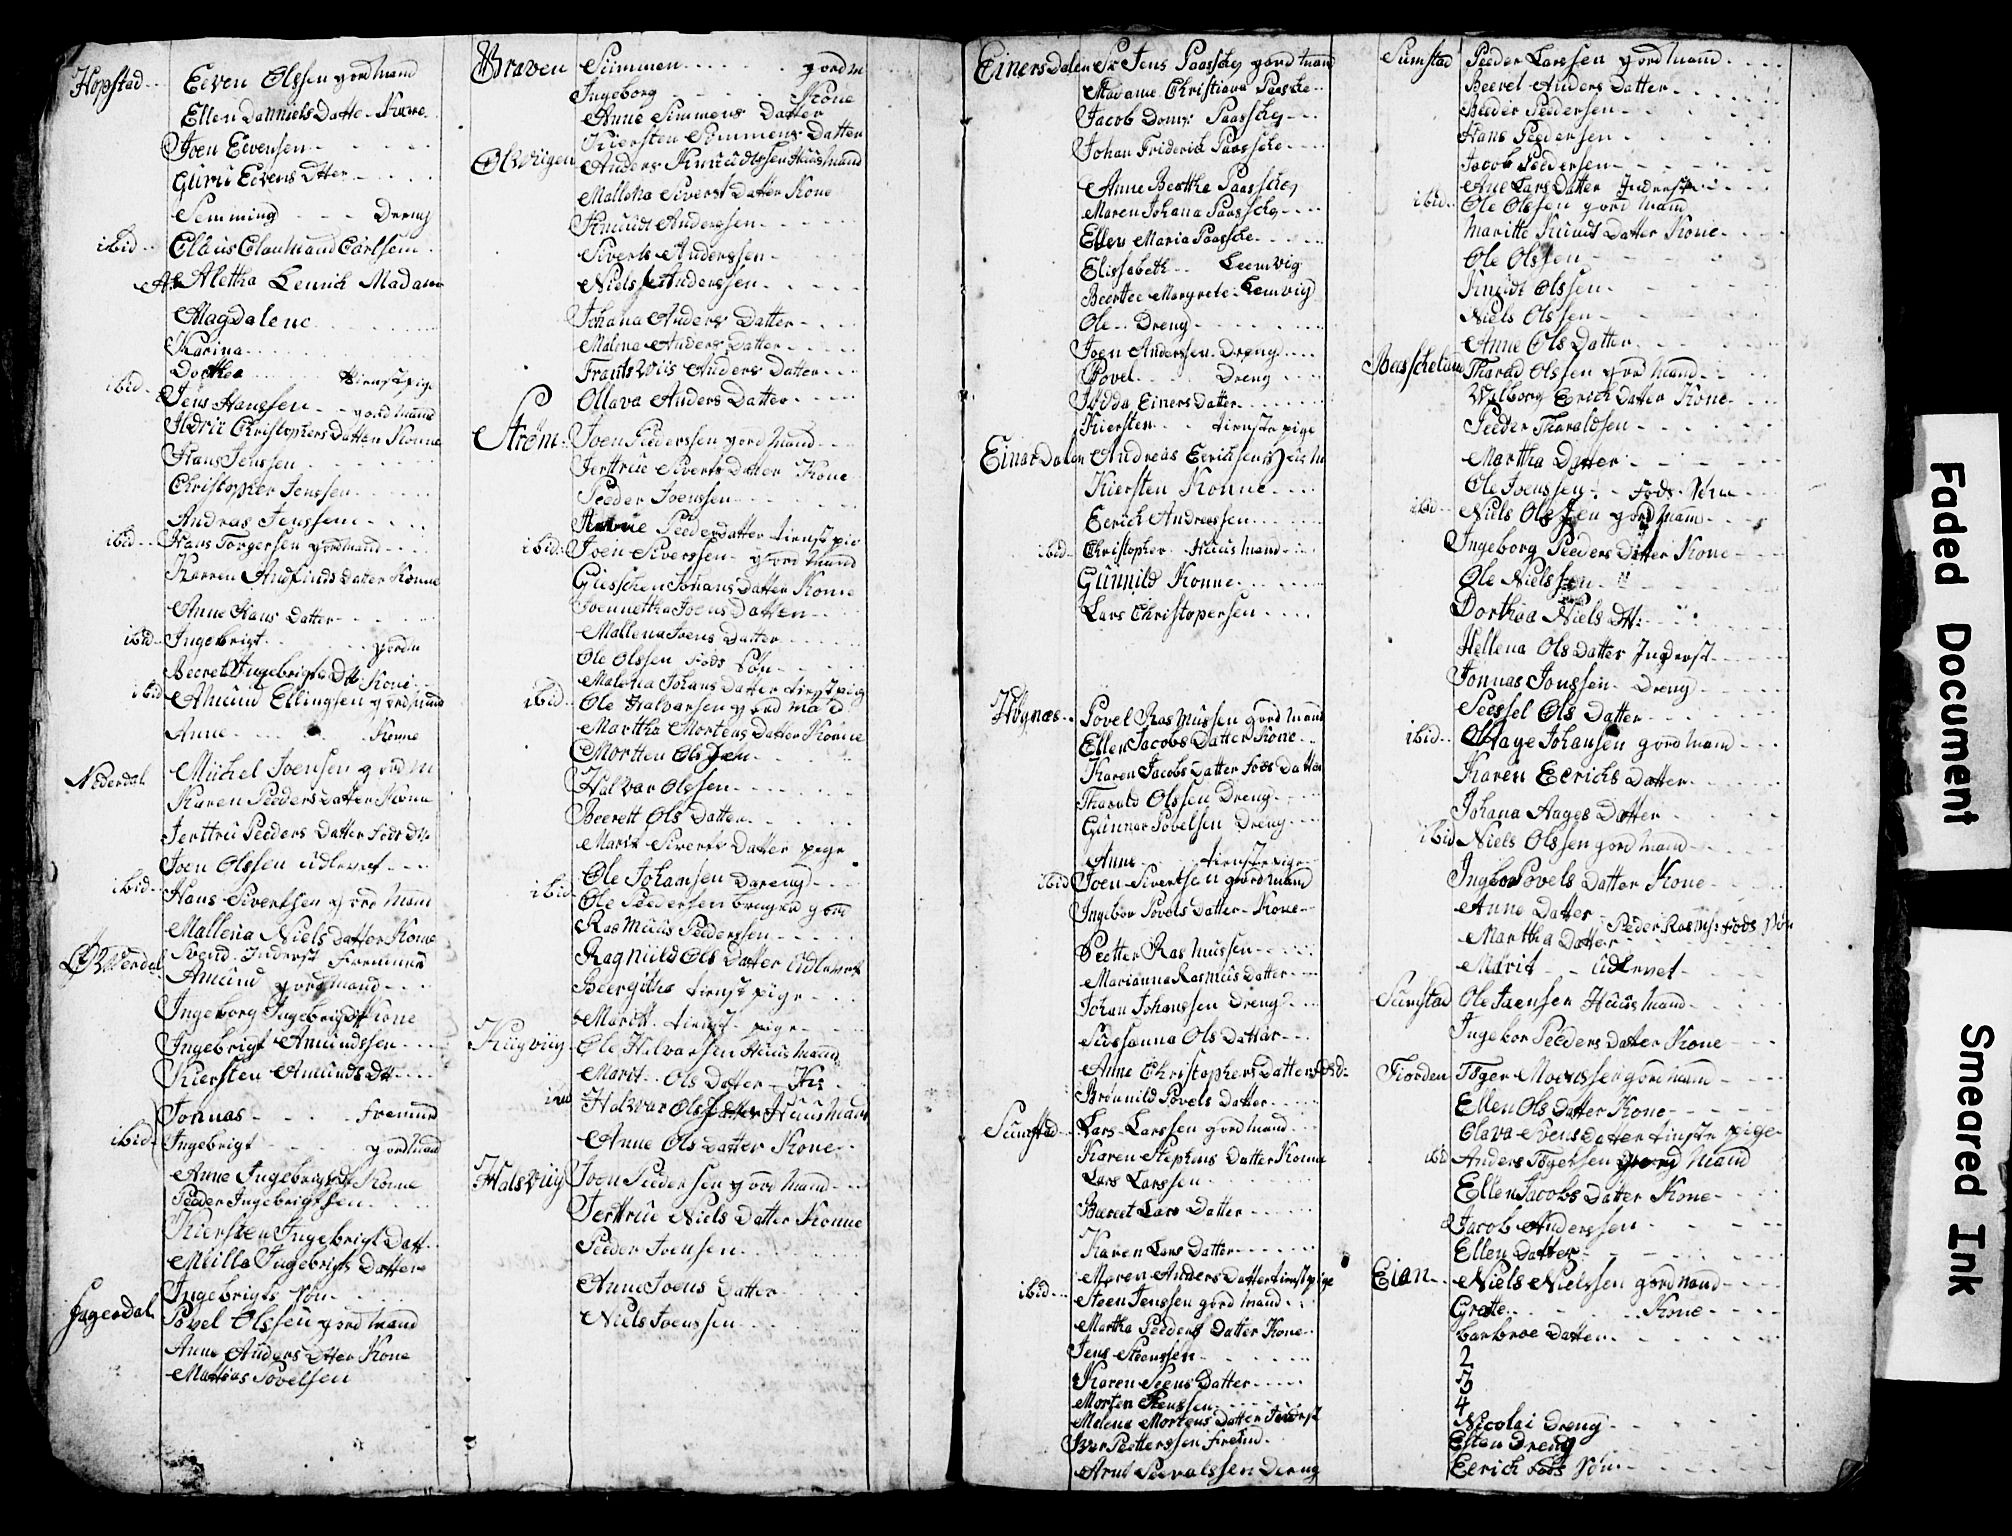 Hopstad.. Eeven Olssen gordmand
Ellen Danniels Datter Kone
Joen Eevensen
Guru Eevens Dtter
Semming Dreng
ibid.. Claus Carlsem
Aletha Lenrich Madam
Magdalene
Karina
Dorthea tienstpige
ibid.. Jens Hanssen gordmand
Christophers Datter Konne
Hans Jenssen
Christopher Jenssen
Andreas Jenssen
ibid.. Hans Torgersen gordmand
Karren Datter Konne
Anne Hans Datter
ibid.. Ingebrigt gordm
Beeret Ingebrigts Dtt. Kone
ibid Amund Ellingsen gordmand
Anne Konne
Nederdal Michel Joensen gordm
Karen Peeders Datter Kone
Jerttru Peeders Datter
Joen Olssen udlevet
ibid.. Hans Sivertsen gordmand
Mallena Niels Datter Kone
Svend Inderst
Øverdal Amund gordmand
Ingeborg Ingebrigtdtt Kone
Ingebrigt Amundssen
Kiersten Amunds Dtt
Jonnas
ibid.. Ingebrigt gordmand
Anne Ingebrigtdtt Konne
Peeder Ingebrigtsen
Kiersten Ingebrigt Datt.
Meilla Ingebrigts Datter
Ingebrigts Søn
Fagerdal Povel Olssen gordmand
Anne Anders Dtter Kone
Mattias Povelsen
Braven Simmen gordm
Ingeborg Kone
Anne Simmens Datter
Kiersten Simmens Datter
Anders Knuudtssen Huusmand
Mallena Siverst Datter Kone
Knuudt Anderssen
Siverts Anderssen
Niels Anderssen
Johana Anders Datter
Malene Anders Datter
Anders Datter
Ollava Anders Datter
Strøm. Joen Peederssen gordmand
Jerttrue Siverts Datter Kone
Peeder Joenssen
Peedersdatter tienstpie
ibid.. Joen Siverssen gordmand
Giesschen Jonans Datter Kone
Joennettha Joens Datter
Mallena Joens Datter
Ole Olssen Fods Søn
Malena Johans Datter tienstpig
ibid.. Ole Halvarsen gordmand
Marttha Mortens Datter Konne
Mortten Olssen
Halvar Olssen
Beerett Ols Datter
Marit Siverts Datter pige
Ole Johansen Dareng
ibid Ole Peedersen bruger gord
Rasmuus Peederssen
Ragnild Ols Datter udlevet
Beergitha tienst pige
Maritt tienst pige
Kugviig Ole Halvarsen Huusmand
Marit Ols Datter
ibid Halvar Olssen Huusmand
Anne Ols Datter Kone
Halsviig Joen Peedersen gordmand
Jerttrue Niels Datter Konne
Peeder Joensen
Anne Joens Datter
Niels Joenssen
Einersdalen Sr Jens Paaschey gordmand
Madame Christiana Paaske
Jacob Domy Paasscke
Johan Friderich Paasscke
Anne Beatha Paasschey
Maren Johana Paasscke
Ellen Maria Paascke
Elissabeth Leemvig
Beertee Margrete Lemvig
Ole Dreng
Joen Anderssen Dreng
Povel Dreng
Jødda Einers Datter
Kiersten tienste pige
Einerdalen Andreas Eerichsen
Kiersten Konne
Eerich Andreessen
ibid.. Christopher Huusmand
Gunnild Konne
Lars Christopersen
Høgnæs.. Povel Rasmussen gordmand
Ellen Jacobs Datter Kone
Karen Jacobs Datter Fods Datter
Tharald Olssen Dreng
Gunner Povelsen Dreng
Anne tienstepige
ibid Joen Sivertsen gordmand
Ingebor Povels Datter Kone
Peetter Rasmussen
Marianna Rasmus Datter
Johan Johanssen Dreng
Sussanna Ols Datter
Anne Christophers Datter
Brønnild Povels Datter
Sumstad.. Lars Larssen gordmand
Karen Stephens Datter Konne
Lars Larssen
Beereet Lars Datter
Karen Lars Datter
Meren Anders Datter tienstpige
ibid.. Steen Jenssen gordmand
Martha Peeders Datter Kone
Jens Steenssen
Karen Seens Datter
Morten Steenssen
Melena Mortens Datter Inderst
Iver Peetterssen
Arnt Dreng
Sumstad Peeder Larssen gordmand
Beeret Anders Datter
Peeder Peedersen
Hans Peedersen
Jacob Peedersen
Ane Lars Datter Inderst
ibid.. Ole Olssen gordmand
Maritte Knuds Datter Kone
Ole Olssen
Knudt Olssen
Niels Olssen
Anne Ols Datter
Tharald Olssen gordmand
Walborg Erich Datter Kone
Peeder Tharaldsen
Martha Dtter
Ole Joenssen Fods Søn
ibid.. Niels Olssen gordmand
Ingeborg Peeders Datter Kone
Ole Nielssen
Dorthea Niels Dtt:
Hellena Ols Datter Inderst
Jonnas Jonssen Dreng
Seessel Ols Datter
ibid.. Aage Johansen gordmand
Karen Eerichs Datter
Johana Aages Datter
ibid Niels Olssen gordmand
Ingebor Povels Datter Kone
Anne Datter
Martha Datter Peder Rasms: Fods Søn
Marit udlevet
Sumstad Ole Jaensen Huusmand
Ingebor Peeders Datter Kone
Fiorden Tøger Moenssen gordmand
Ellen Ols Datter Kone
Olava Svens Datter tienste pige
ibid Anders Tøgersen gord mand
Ellen Jacobs Datter Kone
Jacob Anderssen
Ellen Datter
Eian.. Niels Nielssen gordmand
Grette Kone
barbroe Datter
2
3
4
Nicolai Dreng
Esten Dreng
Eerich Fods Søn
Faded Document
Smeared Ink